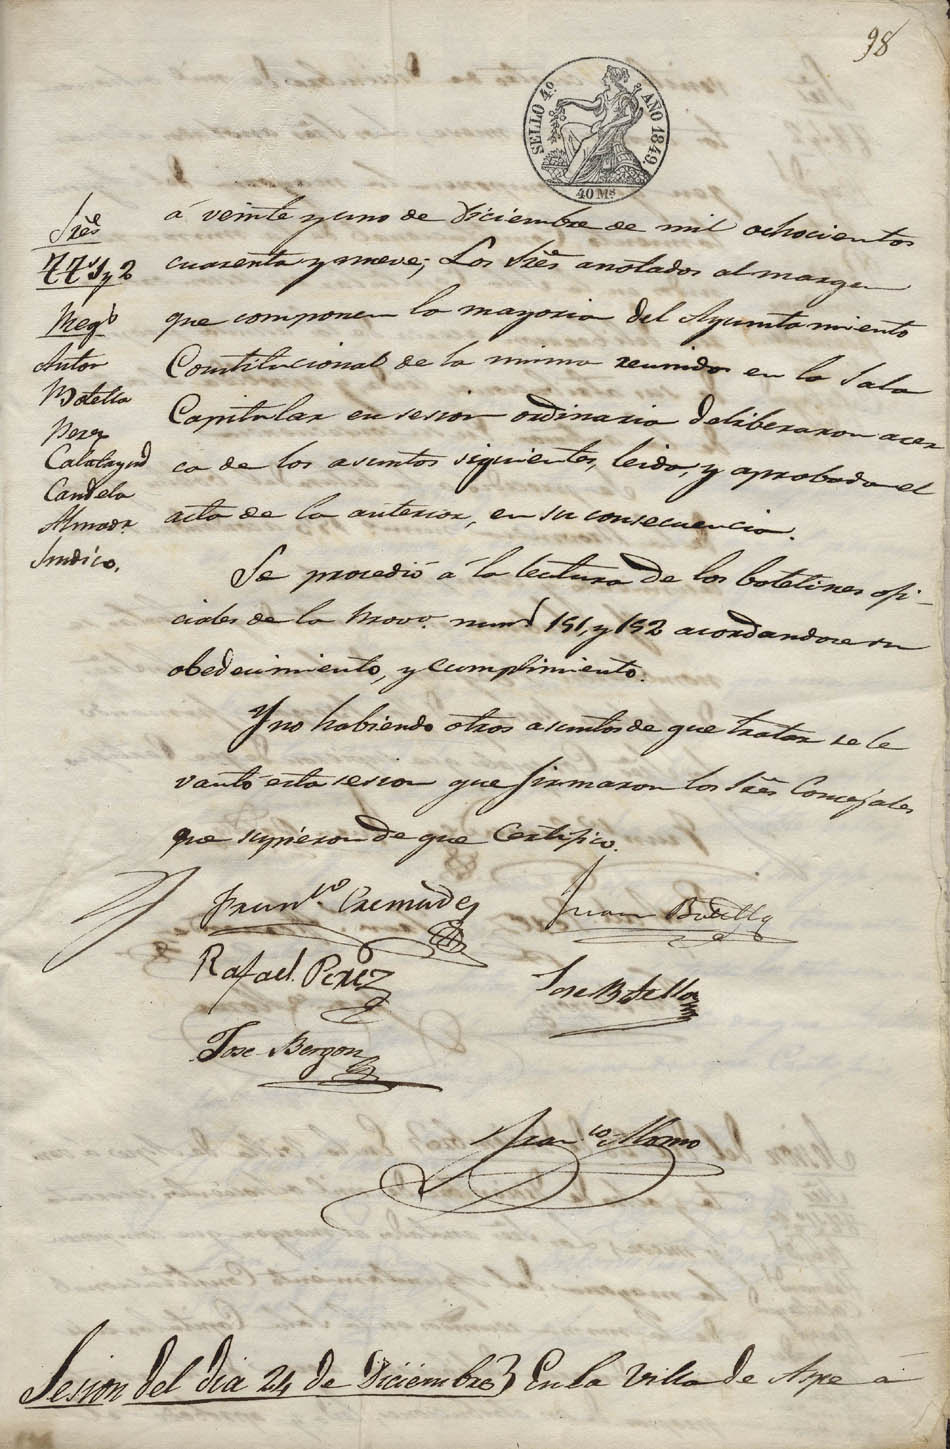 98
SELLO 4.º AÑO 1849.
40 Ms
Sres
TTs 1 y 2
Regs
Antón
Botella
Perez
Calatayud
Candela
Almodr.
Síndico.
á veinte y uno de Diciembre de mil ochocientos
cuarenta y nueve; Los Sres anotados al margen
que componen la mayoria del Ayuntamiento
Constitucional de la misma reunidos en la Sala
Capitular en sesion ordinaria deliberaron acer
ca de los asuntos siguientes, leida, y aprobada el
acta de la anterior, en su consecuencia.
Se procedió á la lectura de los boletines ofi-
ciales de la Prova. nums 151, y 152 acordandose su
obedecimiento, y cumplimiento.
Y no habiendo otros asuntos de que tratar se le
vantó esta sesion que firmaron los Sres Concejales
que supieron de que Certifico.
Franco. Cremades
Juan Botella
Rafael Perez
Jose Botella
Jose Bergon
Franco Alamo
Sesion del dia 24 de Diciembre} En la Villa de Aspe á